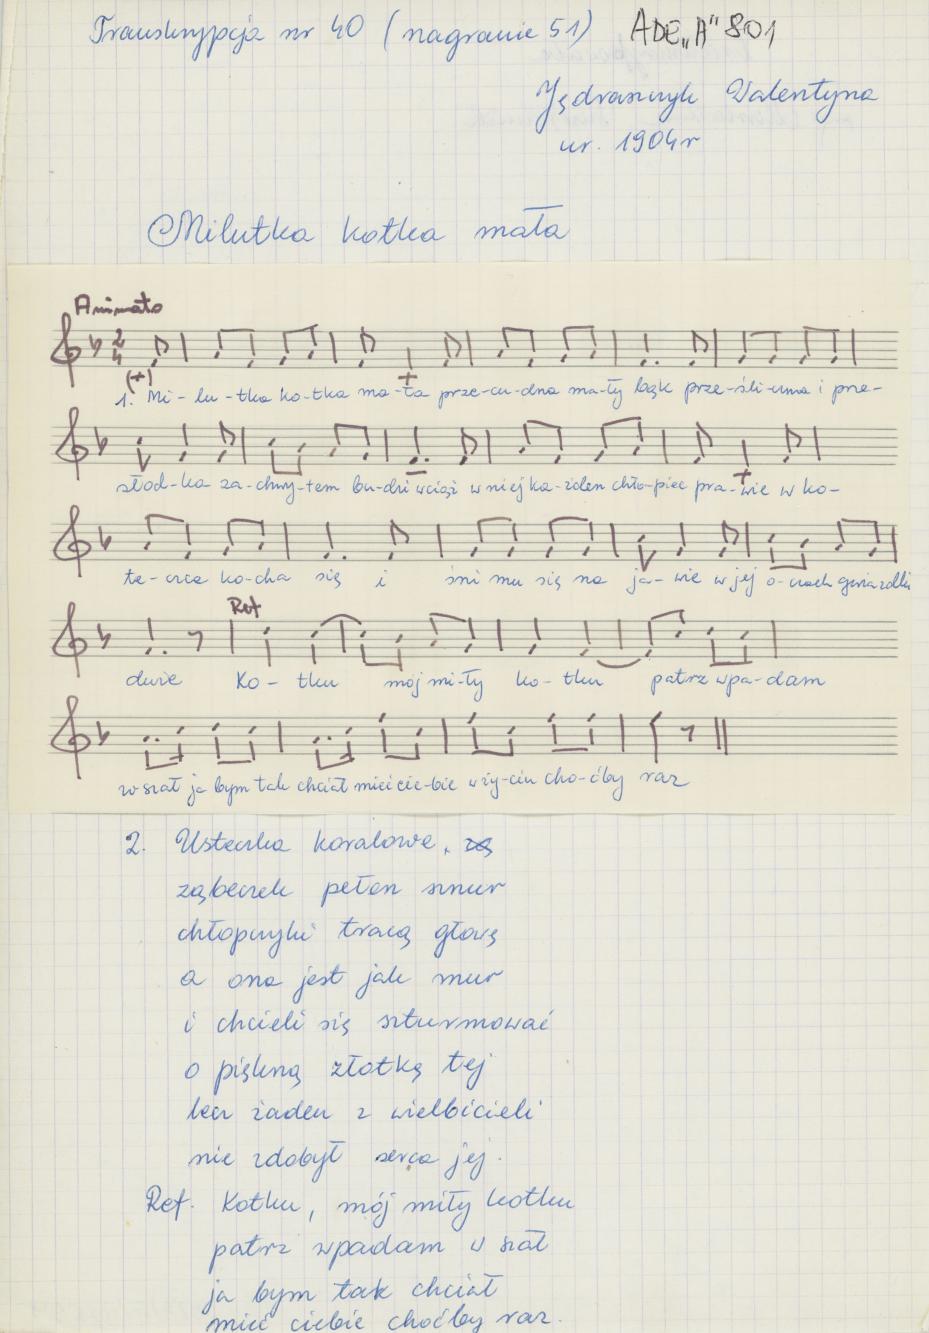 Transkrypcja nr 40 (nagranie 51) ADE„A" 801
Jędraszczyk Walentyna
ur. 1904r
Milutka kotka mała
Animato
2
4
(+)
1. Mi-lu-tka ko-tka ma-ła prze-cu-dna ma-ły bąk prze-śli-czna i prze-
słod-ka za-chwy-tem bu-dzi wciąż w niej ka-żden chło-piec pra-wie w ko-
te-czce ko-cha się i śni mu się na ja-wie w jej o-czach gwiazdki
Ref
dwie Ko-tku mój mi-ły ko-tku patrz wpa-dam
w szał ja bym tak chciał mieć cie-bie w ży-ciu cho-ćby raz
2. Usteczka koralowe,
ząbeczek pełen sznur
chłopczyki tracą głowę
a ona jest jak mur
i chcieli się szturmować
o piękną złotkę tej
lecz żaden z wielbicieli
nie zdobył serca jej.
Ref. Kotku, mój miły kotku
patrz wpadam w szał
ja bym tak chciał
mieć ciebie choćby raz.